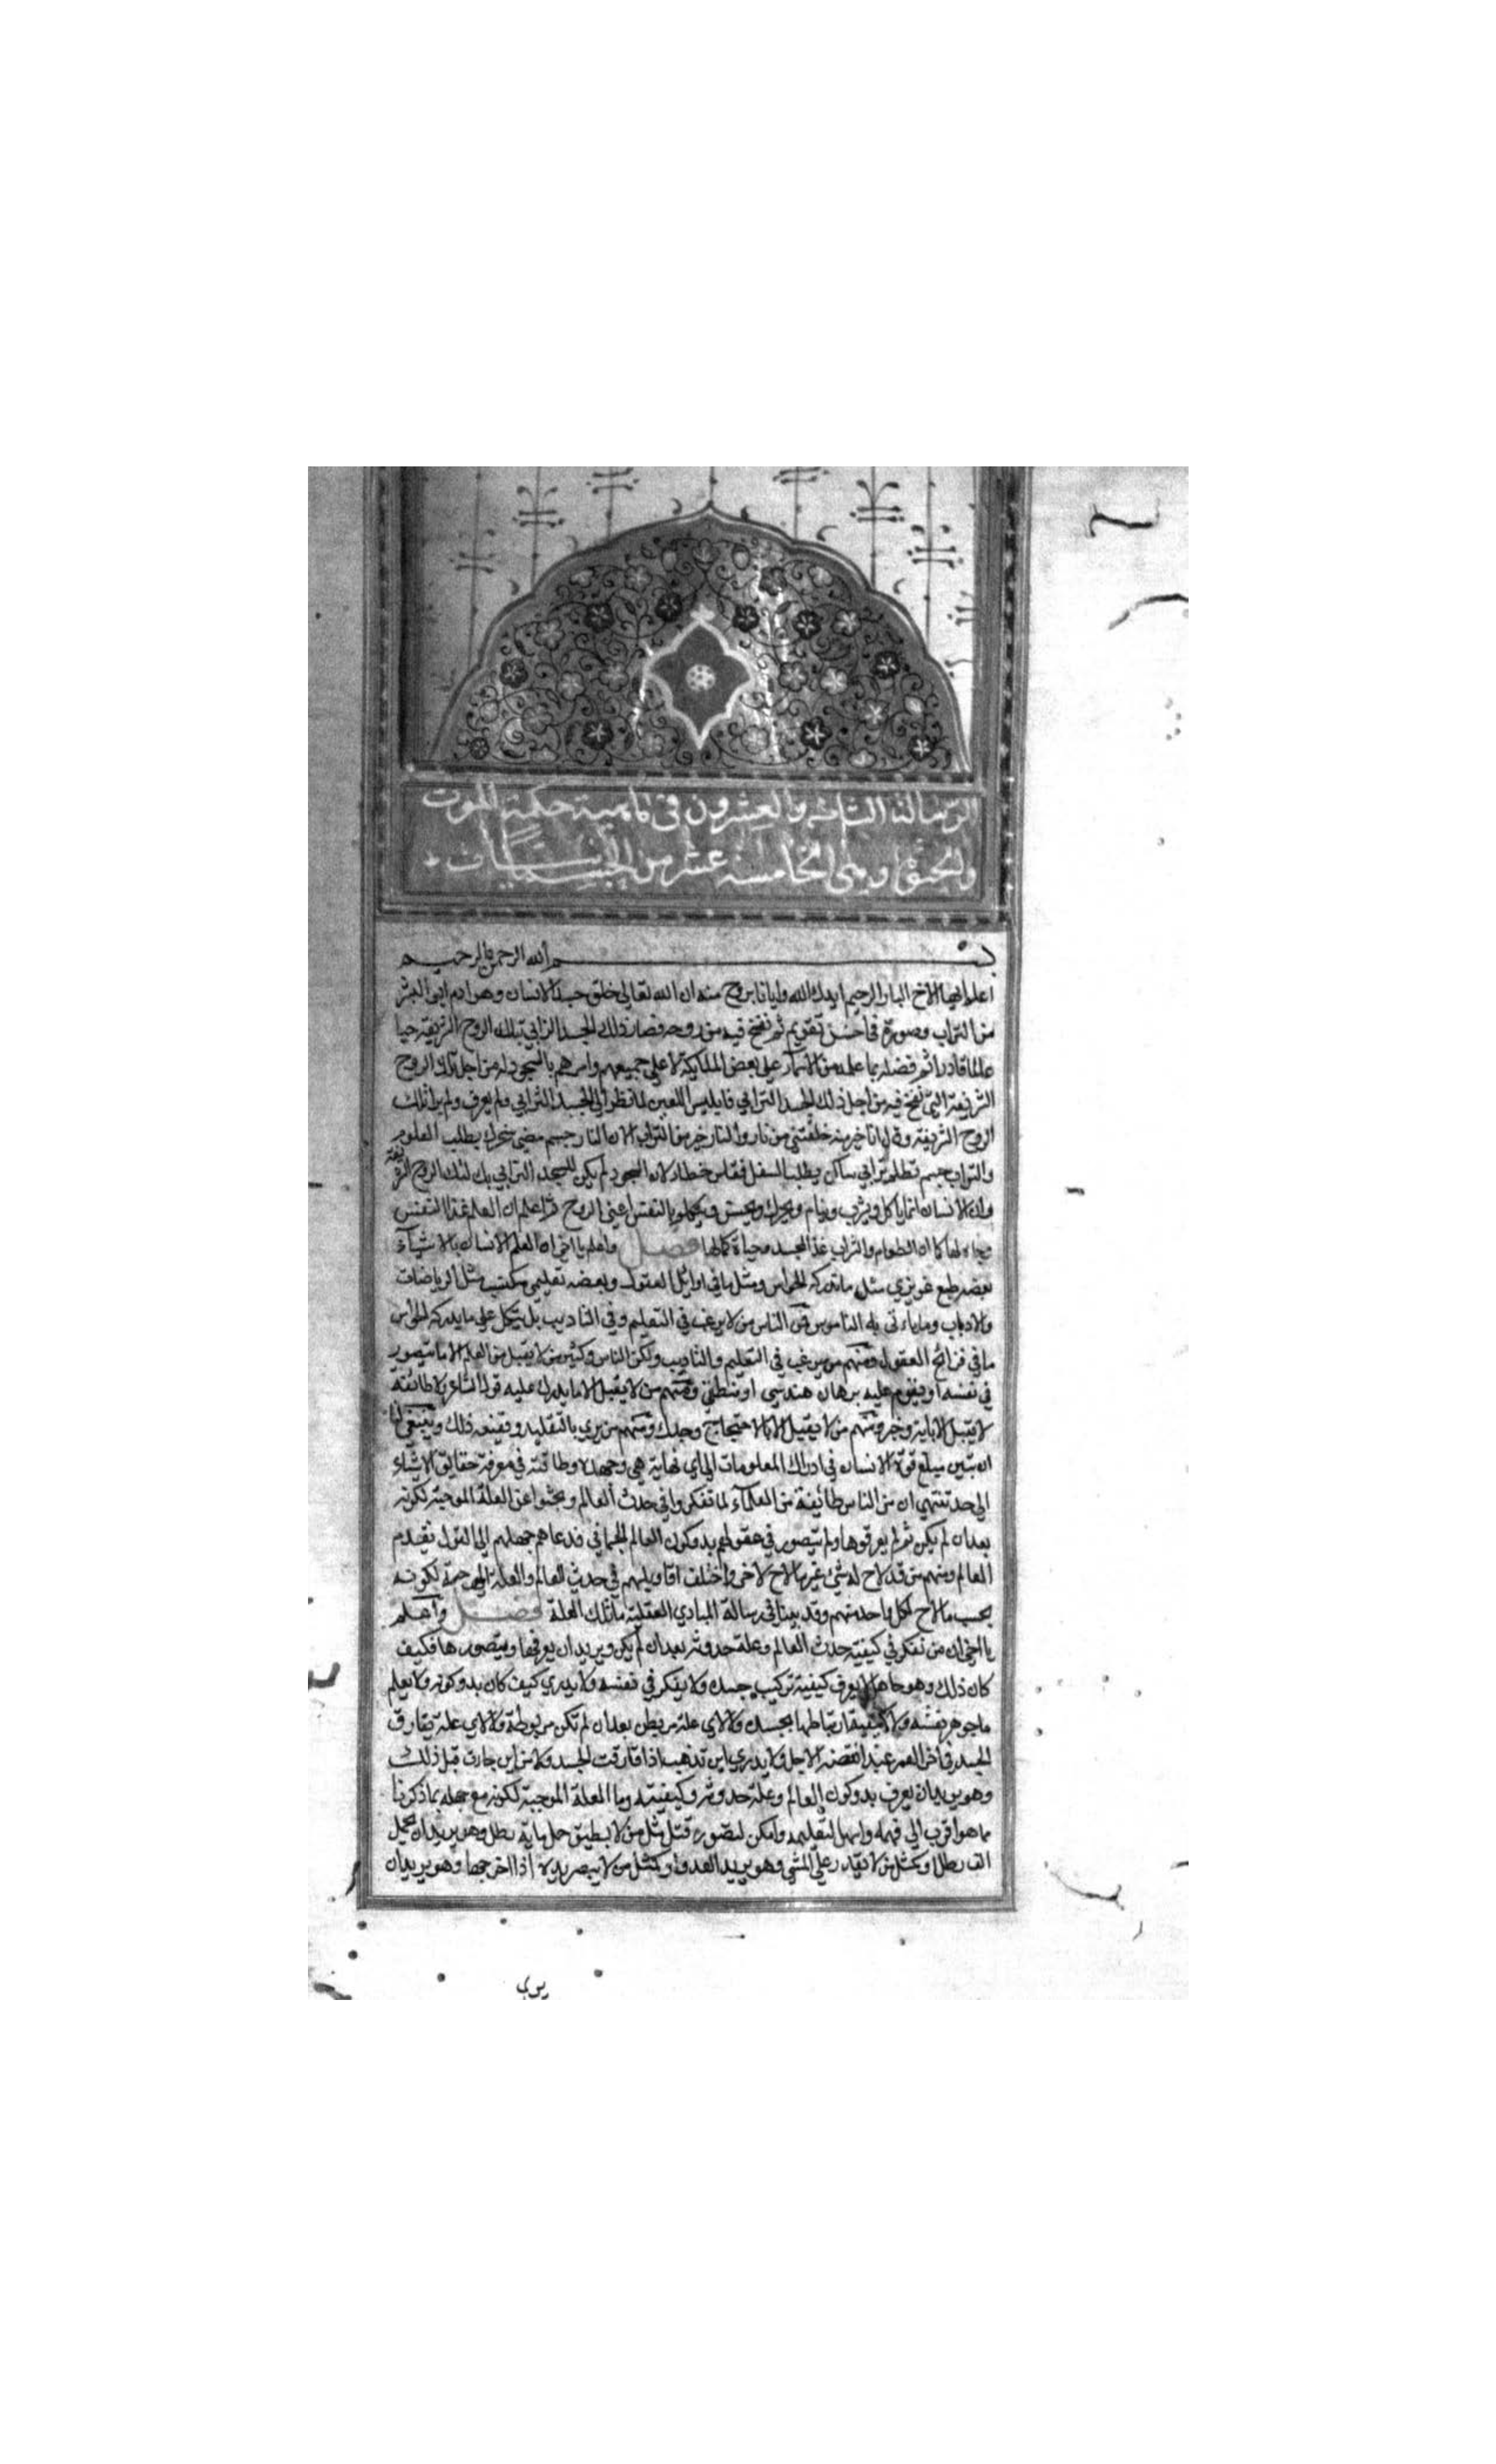 الرسالة الثامنة والعشرون في ماهية حكمة الموت
والحيوة وهي الخامسة عشر من الجسمانيات
بسم الله الرحمن الرحيم
اعلم ايها الاخ البار الرحيم ايدك الله وايانا بروح منه ان الله تعالى خلق جسد الانسان وهو ادم ابي البشر
من التراب وصوره في احسن تقويم ثم نفخ فيه من روحه فصار ذلك الجسد الترابي بتلك الروح الشريفة حيا
عالما قادرا ثم فضله بما علمه من الاسمآء على بعض الملايكة لا على جميعهم وامرهم بالسجود له من اجل تلك الروح
الشريفة التي نفخ فيه من اجل ذلك الجسد الترابي فابليس اللعين لما نظر الى الجسد الترابي ولم يعرف ولم ير تلك
الروح الشريفة وقال انا خير منه خلقتني من نار والنار خير من التراب لان النار جسم مضي متحرك يطلب العلو
والتراب جسم مظلم ترابي ساكن يطلب السفل فقاس خطاء لان السجود لم يكن للجسد الترابي بل لتلك الروح الشريفة
ولان الانسان انما ياكل ويشرب وينام ويحرك ويحس بالنفس اعني الروح ثم اعلم ان العلم غذا النفس
وحياة لها كما ان الطعام والشراب غذا الجسد وحياة كمالها فصل واعلم يا اخي ان العلم الانسان بالاشيآء
بعضه طبع غريزي مثل ما تدركه الحواس ومثل ما في اوايل العقول وبعضه تعليمي مكتسب مثل الرياضات
والاداب وما ياتي به الناموس فمن الناس من لا يرغب في التعليم وفي التاديب بل يتكل على ما يدركه الحواس
ما في قرائح العقول ومنهم من يرغب في التعليم والتاديب ولكن الناس وكثير من لا يقبل من العلم الا ما يتصور
في نفسه او يقوم عليه برهان هندسي او منطقي ومنهم من لا يقبل الا ما يدرك عليه قول الشاعر وطائفة
لا يقبل الا باية وخبر ومنهم من لا يقبل الا بالاحتجاج وجدل ومنهم من يري بالتقليد ويقنعه ذلك وينبغي لنا
ان نبين مبلغ قوة الانسان في ادراك المعلومات الى اي نهاية هي وجهده وطاقته في معرفة حقايق الاشياء
الى حد تنتهي ان من الناس طائفة من العلمآء لما تفكروا في حدث العالم وبحثوا عن العلة الموجبة لكونه
بعدان لم يكن ثم لم يعرفوها ولم يتصور في عقولهم بدو كون العالم الجسماني فدعاهم جهلهم الى القول بقدم
العالم ومنهم من قد لاح له شئ غير ما لاح لاخر واختلف اقاويلهم في حدث العالم والعلة الموجبة لكونه
بحسب ما لاح لكل واحد منهم وقد بينا في رسالة المبادي العقلية ما تلك العلة فصل واعلم
يا اخي ان من تفكر في كيفية حدث العالم وعلة حدوثه بعد ان لم يكن ويريد ان يعرفها ويتصورها فكيف
كان ذلك وهو جاهل لا يعرف كيفية تركيب جسده ولا يفكر في نفسه ولا يدري كيف كان بدو كونه ولا يعلم
ما جوهر نفسه ولا كيفية ارتباطها بجسده ولا لاي علة بعد ان لم تكن مربوطة ولا لاي علة تفارق
الجسد في اخر العمر عند الاجل ولا يدري اين تذهب اذا فارقت الجسد ولا من اين جاءت قبل ذلك
وهو يريد ان يعرف بدو كون العالم وعلة حدوثه وكيفيته وما العلة الموجبة لكونه مع جهله بما ذكرنا
مما هو اقرب الى فهمه واسهل لتعليمه وامكن لتصوره مثل من لا يطيق حمل ماية رطل وهو يريد ان يحمل
الف رطل او كمثل من لا يقدر على المشي وهو يريد العدو او كمثل من لا يبصر يده اذا اخرجها وهو يريد ان
يري